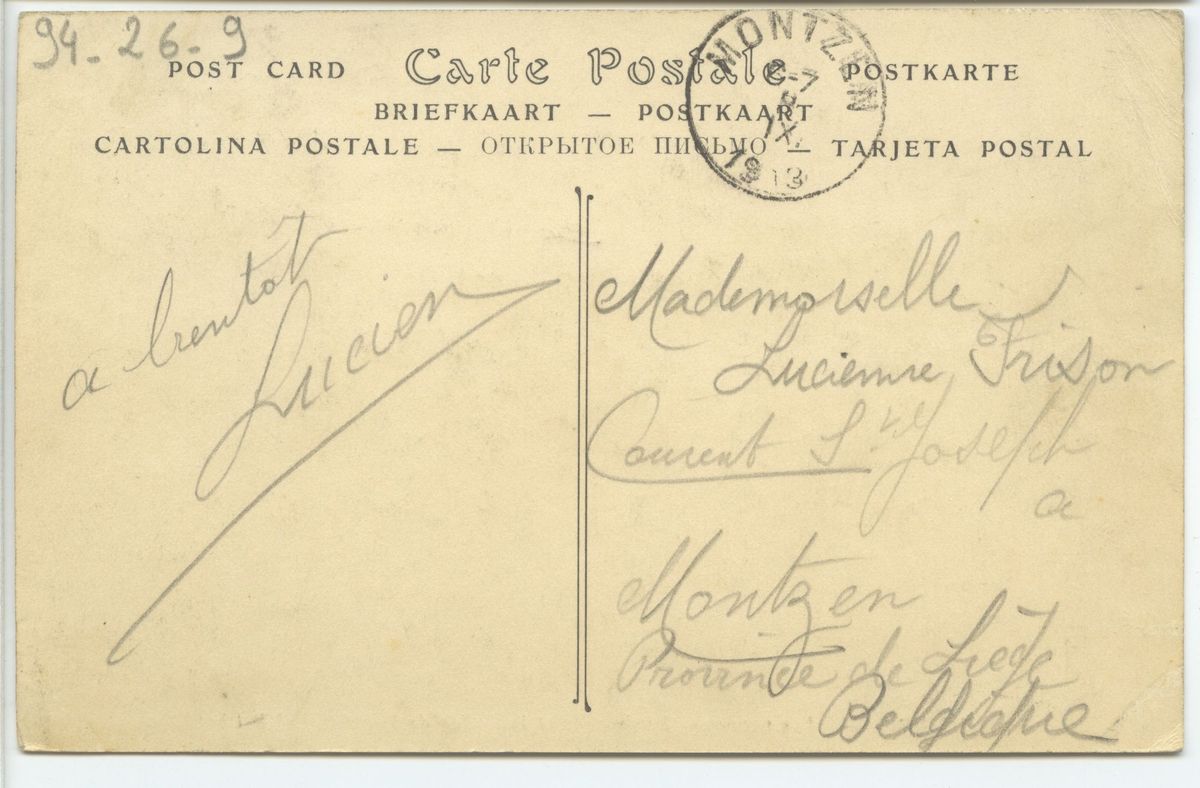 94-26-9
POST CARD Carte Postale POSTKARTE
BRIEFKAART — POSTKAART
CARTOLINA POSTALE — ОТКРЫТОЕ ПИСЬМО — TARJETA POSTAL
MONTZEN
6-7
8
IX
1913
a bientôt
Lucien
Mademoiselle
Lucienne Frison
Couvent St Joseph
a
Montzen
Province de Liège
Belgique